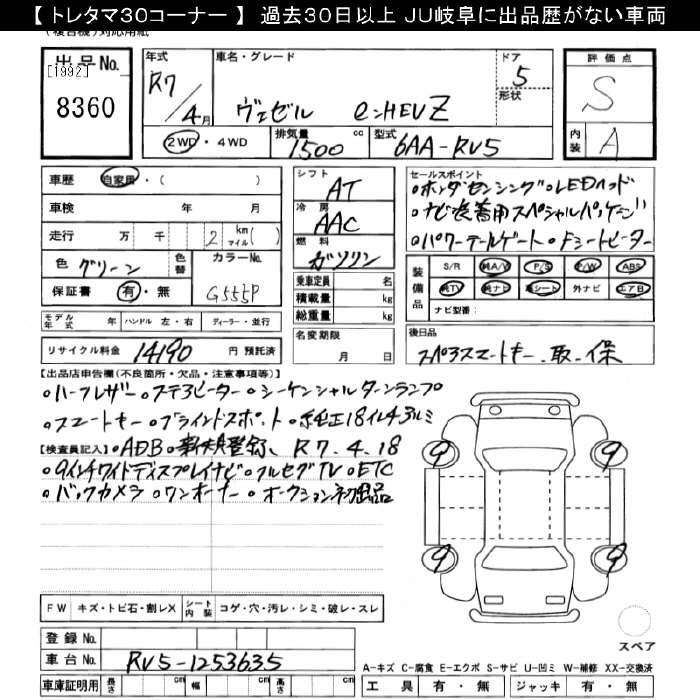 【 トレタマ30コーナー 】 過去30日以上 JU岐阜に出品歴がない車両
(複合機)対応用紙
出品No.
[1992]
8360
年式
R7
4月
車名・グレード
ヴェゼル e:HEV Z
ドア
5
形状
評価点
S
内装
A
2WD・4WD
排気量
1500 cc
型式
6AA-RV5
車歴 自家用・( )
車検 年 月
走行 万 千 2 km マイル( )
色 グリーン
色替
カラーNo.
G555P
保証書 有・無
モデル年式 年 ハンドル 左・右 ディーラー・並行
リサイクル料金 14190 円 預託済
シフト
AT
冷房
AAC
燃料
ガソリン
乗車定員 名
積載量 kg
総重量 kg
名変期限
月 日
セールスポイント
○ホンダセンシング○LEDヘッド
○ナビ装着用スペシャルパッケージ
○パワーテールゲート○Fシートヒーター
装備品
S/R 純A/V P/S P/W ABS
純TV 純ナビ 革シート 外ナビ エアB
ナビ型番:
後日品
スペアスマートキー、取、保
【出品店申告欄(不良箇所・欠品・注意事項等)】
○ハーフレザー○ステアヒーター○シーケンシャルターンランプ
○スマートキー○ブラインドスポット○純正18インチアルミ
【検査員記入】○ADB○新規登録、R7.4.18
○9インチワイドディスプレイナビ○フルセグTV○ETC
○バックカメラ○ワンオーナー○オークション初出品
9
9
9
9
FW キズ・トビ石・割レX
シート内装 コゲ・穴・汚レ・シミ・破レ・スレ
スペア
登録No.
車台No. RV5-1253635
車庫証明用 長さ cm 幅 cm 高さ cm
A-キズ C-腐食 E-エクボ S-サビ U-凹ミ W-補修 XX-交換済
工具 有・無 ジャッキ 有・無